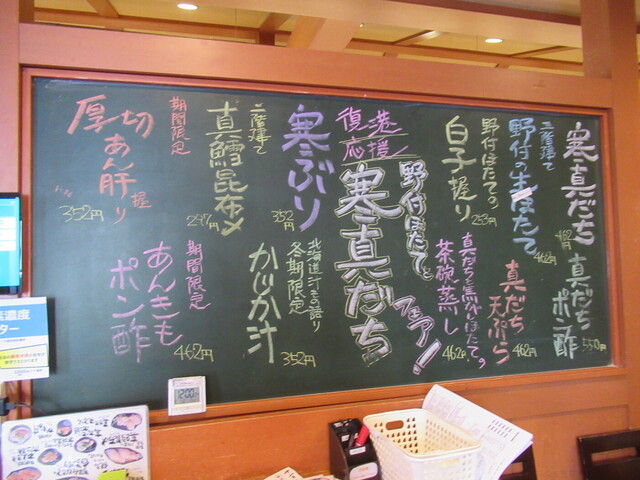 寒真だち
462円
真だち
ポン酢
550円
二階建て
野付の生ほたて
462円
真だち
天ぷら
462円
野付ほたての
白子握り
253円
真だちと蒸しほたての
茶碗蒸し
462円
復港
応援
野付ほたてと
寒真だち
フェア!
寒ぶり
352円
北海道汁も語り
冬期限定
かじか汁
352円
二階建て
真鱈昆布〆
297円
期間限定
あんきも
ポン酢
462円
期間限定
厚切
あん肝握り
352円